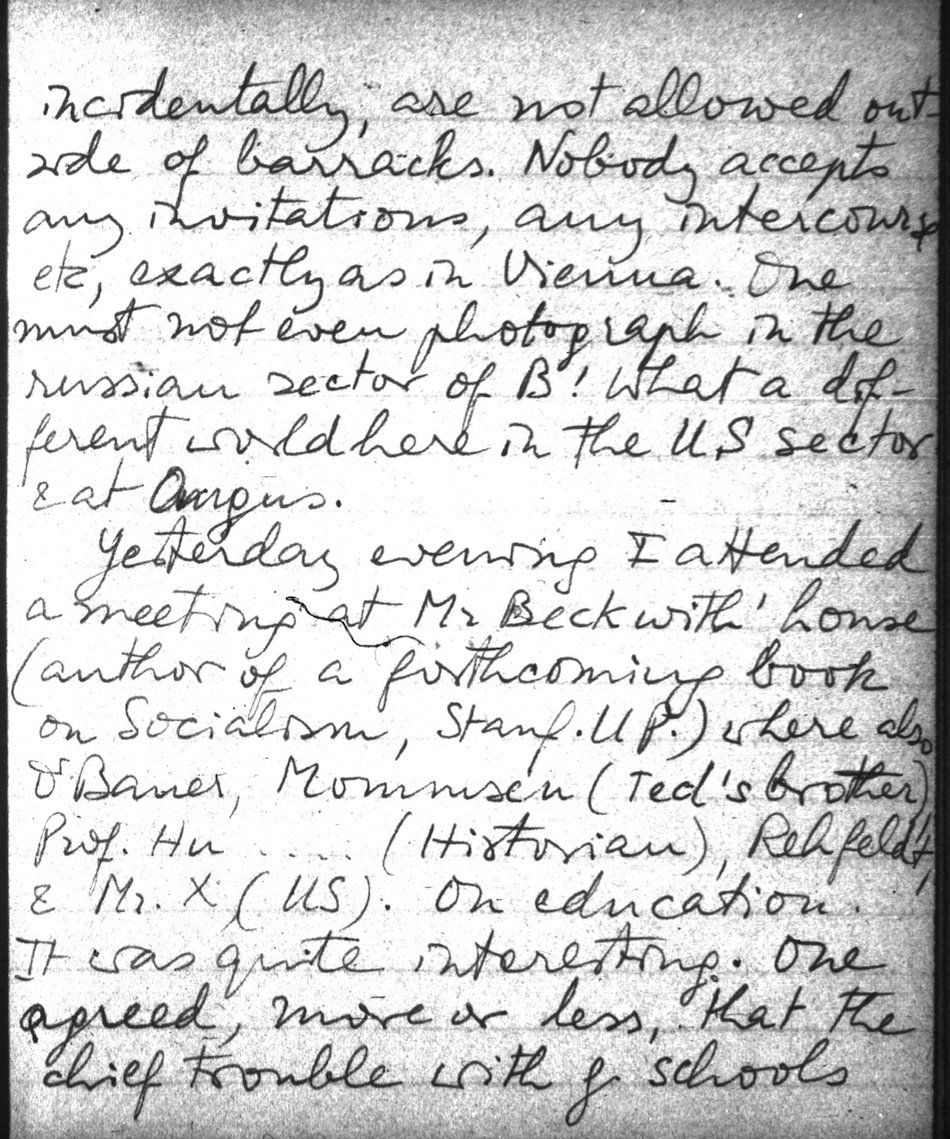 incidentally, are not allowed out-
side of barracks. Nobody accepts
any invitations, any intercourse
etc, exactly as in Vienna. One
must not even photograph in the
russian sector of B! What a dif-
ferent world here in the US sector
& at Argus.
Yesterday evening I attended
a meeting at Mr Beckwith' house
(author of a forthcoming book
on Socialism, Stanf. U.P.) where also
Bauer, Mommsen (Ted's brother)
Prof. Hu ..... (Historian), Rehfeldt,
& Mr. X (US). On education.
It was quite interesting. One
agreed, more or less, that the
chief trouble with g. schools